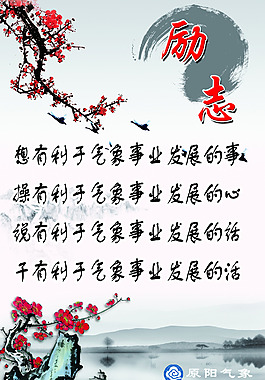 励志
想有利于气象事业发展的事
操有利于气象事业发展的心
说有利于气象事业发展的话
干有利于气象事业发展的活
原阳气象